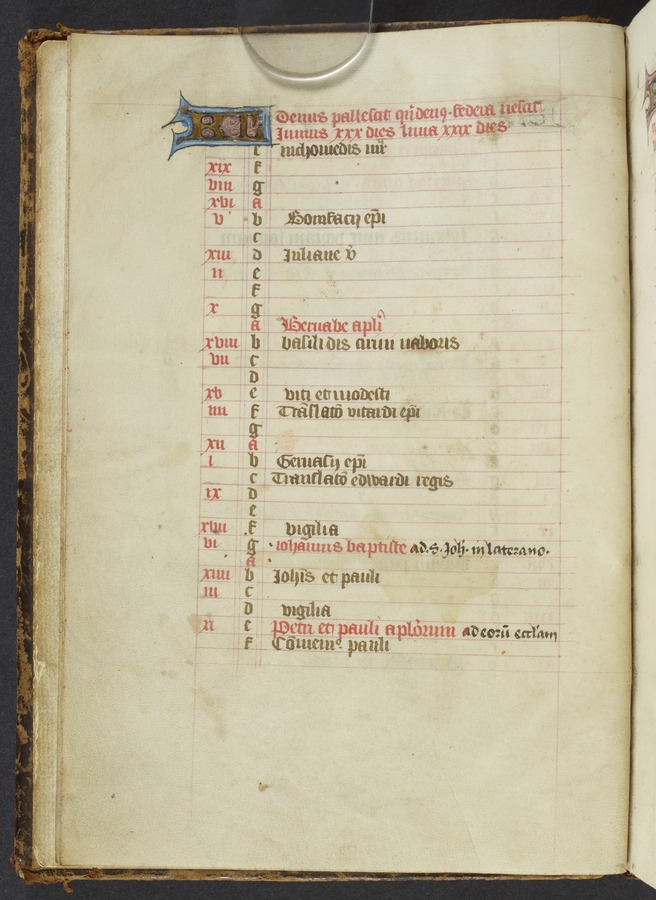 Denus pallescit quideno federa nescit
Junius xxx dies luna xxix dies
e nichomedis mr
xix f
viii g
xvi a
v b Bonifacij epi
c
xiii d Juliane v
ii e
f
x g
a Bernabe apli
xviii b basilidis cirini naboris
vii c
d
xv e viti et modesti
iiii f Traslato vitardi epi
g
xii a
i b Geruasij epi
c Translato edwardi regis
ix d
e
xvii f vigilia
vi g iohannis baptiste ad. S. Joh. in laterano.
a
xiiii b Johis et pauli
iii c
d vigilia
xi e Petri et pauli aplorum ad eoru eccl'am
f Comem pauli